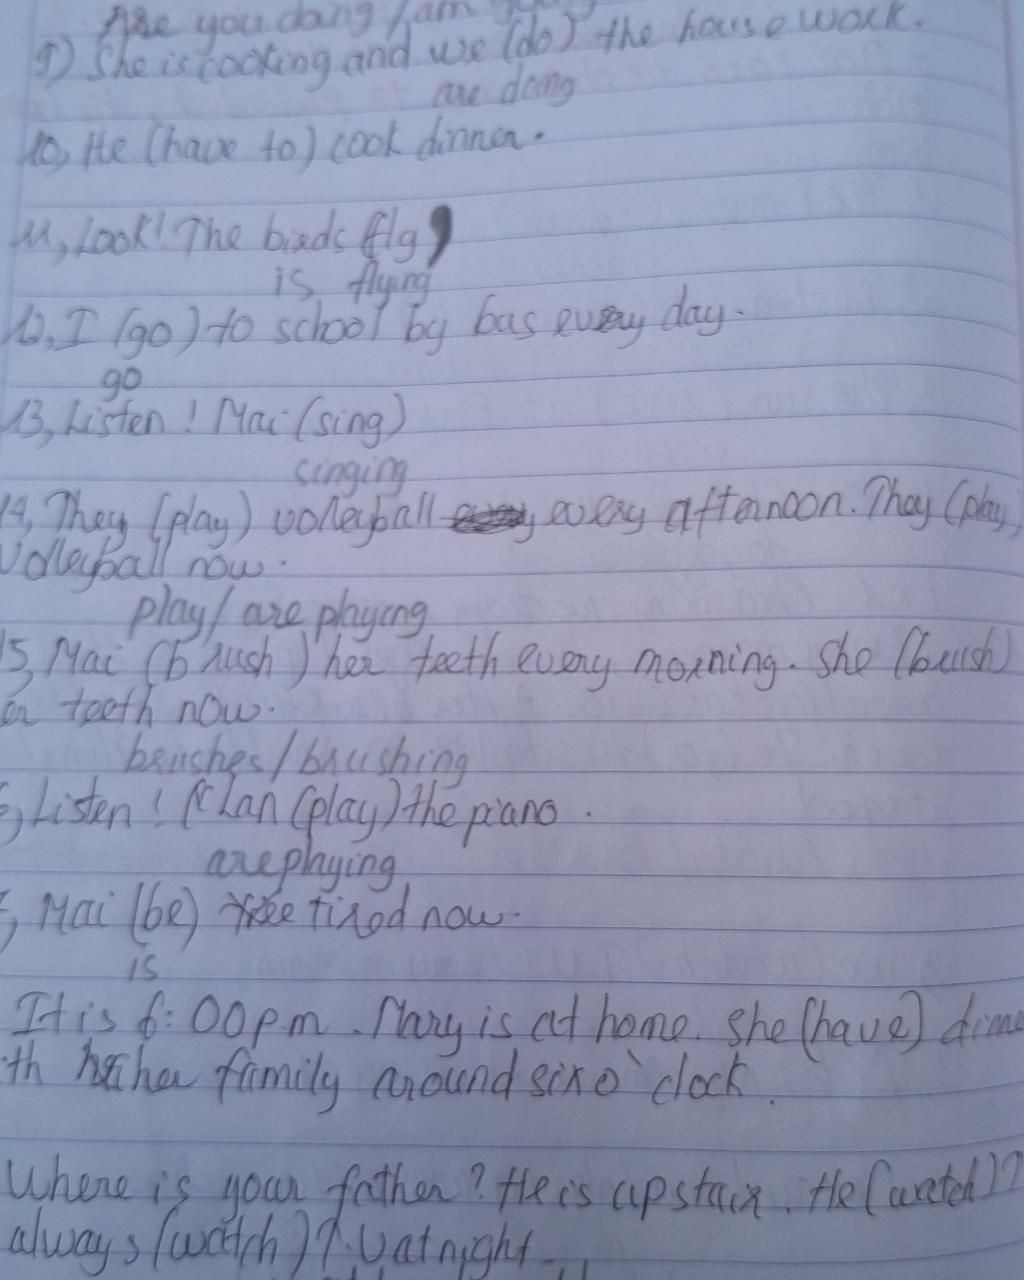 Are you doing / am
9) She is cooking and we (do) the housework.
are doing
10, He (have to) cook dinner.
11, Look! The birds (fly)
is flying
12, I (go) to school by bus every day.
go
13, Listen! Mai (sing)
singing
14, They (play) volleyball every afternoon. They (play)
volleyball now.
play / are playing
15, Mai (brush) her teeth every morning. She (brush)
teeth now.
brushes / brushing
, Listen! Lan (play) the piano.
are playing
, Mai (be) tired now.
is
It is 6:00 pm. Mary is at home. She (have)
th her family around six o'clock.
Where is your father? He is upstair. He (watch)
always (watch) T.V at night